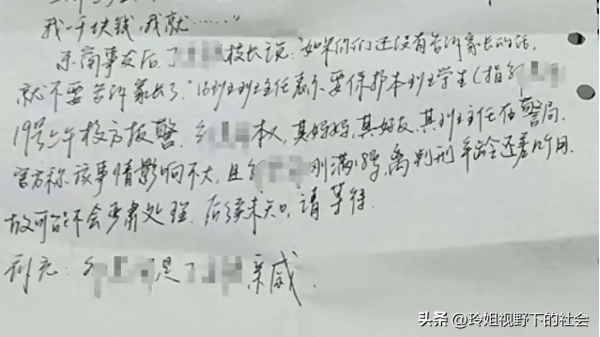 我一千块钱,我就……"
东窗事发后,丁 校长说:"如果你们还没有告诉家长的话,
就不要告诉家长了."16班班主任表示要保护本班学生(指
19号上午校方报警. 本人,其妈妈,其好友,其班主任在警局.
官方称该事情影响不大,且 刚满 岁,离判刑年龄还差 个月.
故可能不会严肃处理.后续未知,请等待.
补充: 是 亲戚.
头条 @玲姐视野下的社会